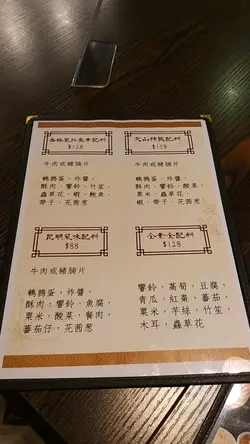 香格里拉豪華配料
$128
牛肉或豬腩片
鵪鶉蛋，炸醬，
酥肉，響鈴，竹笙，
蟲草花，蝦，鮑魚，
帶子，花菌葱
$108
牛肉或豬腩片
鵪鶉蛋，炸醬，
酥肉，響鈴，酸菜，
粟米，蟲草花，
蝦，帶子，花菌葱
昆明風味配料
$88
牛肉或豬腩片
鵪鶉蛋，炸醬，
酥肉，響鈴，魚腐，
粟米，酸菜，餐肉，
蕃茄仔，花菌葱
全素食配料
$128
響鈴，萵筍，豆腐，
青瓜，紅棗，蕃茄，
粟米，芋絲，竹笙，
木耳，蟲草花